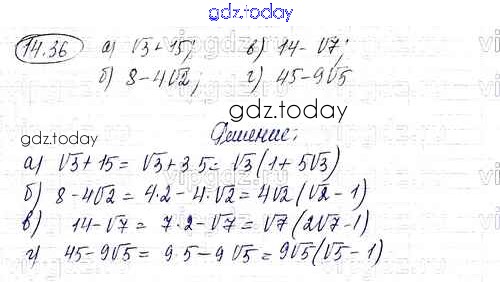 gdz.today
14.36 а) √3 + 15; в) 14 - √7;
б) 8 - 4√2; г) 45 - 9√5
gdz.today
gdz.today
Решение:
а) √3 + 15 = √3 + 3·5 = √3(1 + 5√3)
б) 8 - 4√2 = 4·2 - 4·√2 = 4√2(√2 - 1)
в) 14 - √7 = 7·2 - √7 = √7(2√7 - 1)
г) 45 - 9√5 = 9·5 - 9√5 = 9√5(√5 - 1)